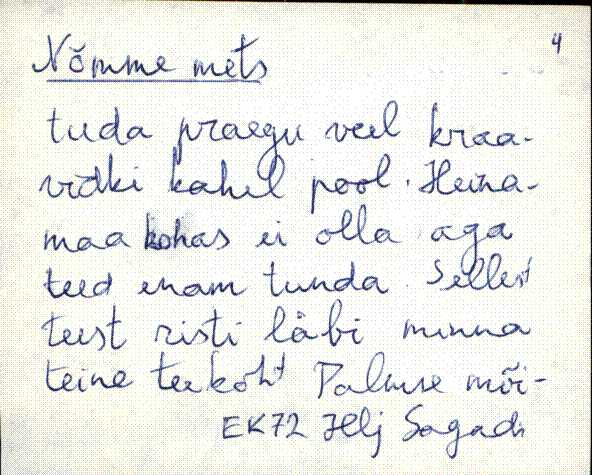 4
Nõmme mets
tuda praegu veel kraa-
vidki kahel pool. Heina-
maa kohas ei olla aga
teed enam tunda. Sellest
teest risti läbi minna
teine teekoht Palmse mõi-
EK72 Hlj Sagadi